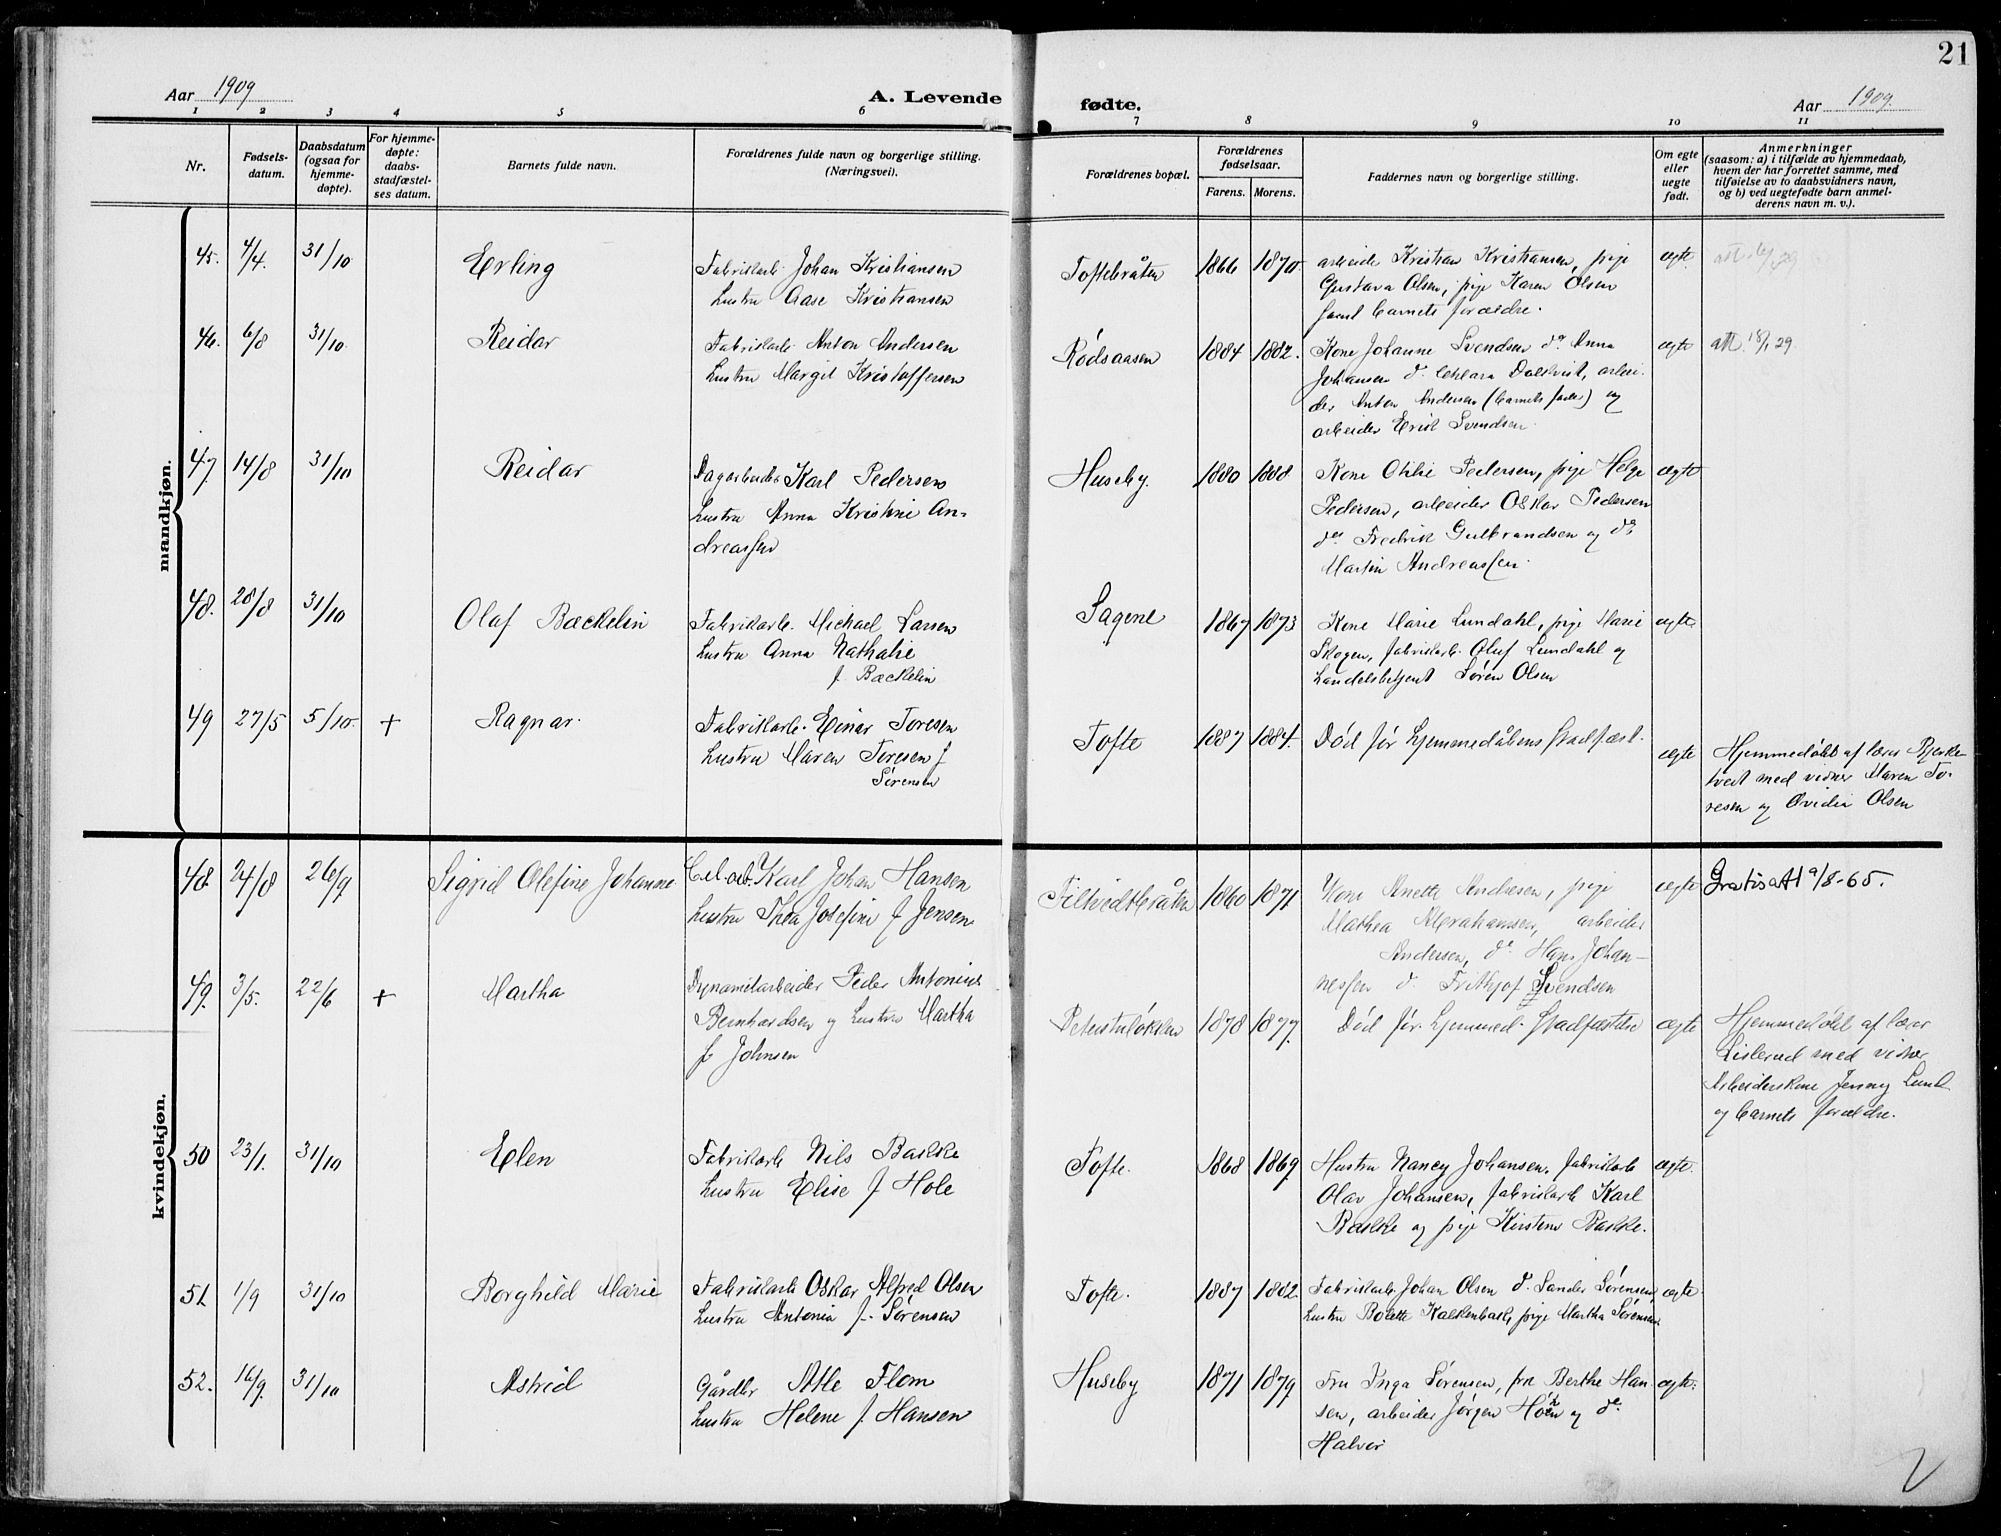 21
Aar 1909
A. Levende
fødte.
Aar 1909.
1 2 3 4 5 6 7 8 9 10 11
Nr.
Fødsels-
datum.
Daabsdatum
(ogsaa for
hjemme-
døpte).
For hjemme-
døpte:
daabs-
stadfæstel-
ses datum.
Barnets fulde navn.
Forældrenes fulde navn og borgerlige stilling.
(Næringsvei).
Forældrenes bopæl.
Forældrenes
fødselsaar.
Farens. Morens.
Faddernes navn og borgerlige stilling.
Om egte
eller
uegte
født.
Anmerkninger
(saasom: a) i tilfælde av hjemmedaab,
hvem der har forrettet samme, med
tilføielse av to daabsvidners navn,
og b) ved uegtefødte barn anmel-
derens navn m. v.).
mandkjøn.
45. 4/4. 31/10 Erling
Fabrikarb. Johan Kristiansen
hustru Aase Kristiansen
Toftebråten 1866 1870.
arbeide Kristian Kristiansen, pige
Gustava Olsen, pige Karen Olsen
samt barnets forældre.
egte.
46. 6/8 31/10. Reidar
Fabrikarb. Anton Andersen
hustru Margit Kristoffersen
Rødsaasen 1884 1882.
Kone Johanne Svendsen do Anna
Johansen d. Chlara Dalkvist, arbei-
der Anton Andersen (barnets fader) og
arbeider Erik Svendsen.
egte
att. 18/1 29.
47. 14/8 31/10 Reidar
Dagarbeider Karl Pedersen
hustru Anna Kristine An-
dreassen
Huseby. 1880 1888.
Kone Otilie Pedersen, pige Helga
Pedersen, arbeider Oskar Pedersen
do Fredrik Gulbrandsen og do
Martin Andreassen.
egte
48. 28/8 31/10 Olaf Bæckelin
Fabrikarb. Michael Larsen
hustru Anna Nathalie
f. Bæckelin
Sagene 1867 1873
Kone Marie Lundahl, pige Marie
Skogen, fabrikarb. Oluf Lundahl og
handelsbetjent Søren Olsen
egte
49 27/5 5/10. + Ragnar.
Fabrikarb. Einar Toresen
hustru Maren Toresen f.
Sørensen
Tofte 1887 1884.
Død før hjemmedåbens stadfæst.
egte
Hjemmedøbt af lærer Bjerke-
tvedt med vidner Maren To-
resen og Ovidia Olsen
kvindekjøn.
48. 24/8 26/9 Sigrid Olefine Johanne
Cel.arb. Karl Johan Hansen
hustru Thea Josefine f. Jensen
Filtvedtbråten 1860 1871
Kone Anette Andresen, pige
Mathea Abrahamsen, arbeider
Andersen, do Hans Johan-
nessen d. Frithjof Svendsen
egte
Gratisatt 9/8-65.
49. 3/5. 22/6 + Martha
Dynamitarbeider Peder Antonius
Bernhardsen og hustru Martha
f. Johnsen
1878 1877.
Død før hjemmed. stadfæstelse
egte
Hjemmedøbt af lærer
Lislerud med vidner
Arbeiderskone Jenny Lund
og barnets forældre.
50 23/1. 31/10 Elen
Fabrikarb Nils Bakke
hustru Elise f. Hole
Tofte. 1868 1869.
Hustru Nancy Johansen, fabrikarb
Olav Johansen, fabrikarb Karl
Bakke og pige Kirstene Bakke.
egte.
51. 1/9 31/10 Borghild Marie
Fabrikarb Oskar Alfred Olsen
hustru Antonia f. Sørensen
Tofte. 1887 1882.
Fabrikarb. Johan Olsen d. Sander Sørensen,
hustru Bolette Kalkenbakk, pige Martha Sørensen
egte
52. 16/9. 31/10 Astrid
Gårdbr Atle Flom
hustru Helene f. Hansen
Huseby 1871 1879.
Fru Inga Sørensen, frk Berthe Han-
sen, arbeider Jørgen Hoen og do
Halvor
egte.
2